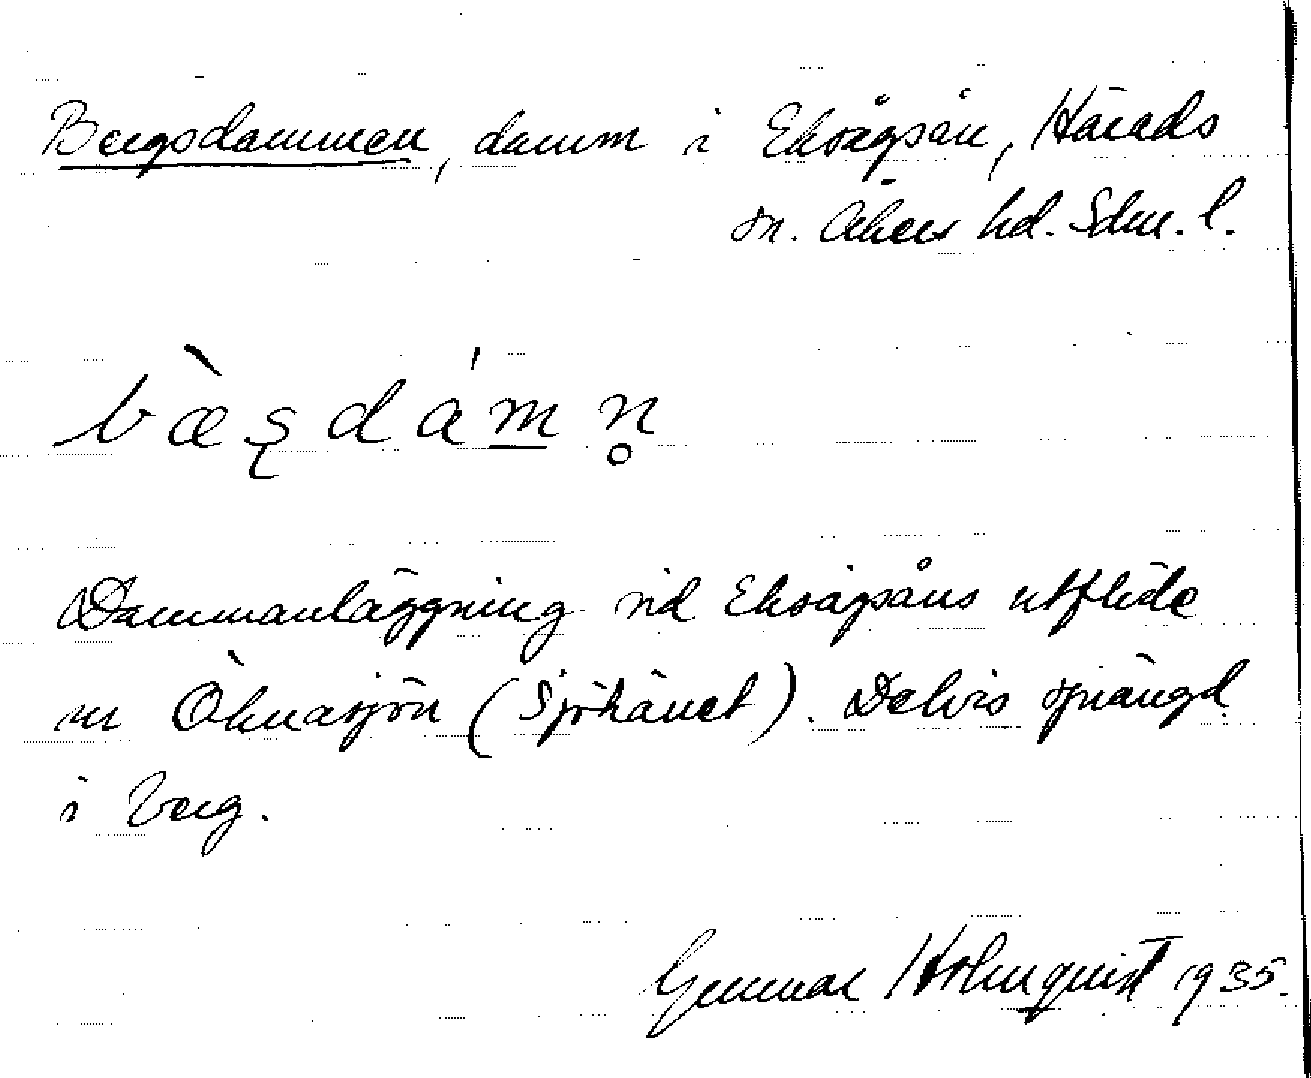 Bergsdammen, damm i Eksågsån, Härads
sn. Åkers hd. Sdm. l.
bæ̀ṣdám̲n̥
Dammanläggning vid Eksågsåns utflöde
ur Öknasjön (Sjöhäret). Delvis sprängd
i berg.
Gunnar Holmquist 1935.